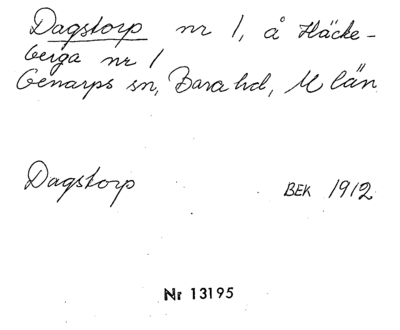 Dagstorp nr 1, å Häcke-
berga nr 1
Genarps sn, Bara hd, M län
Dagstorp BEK 1912
Nr 13195